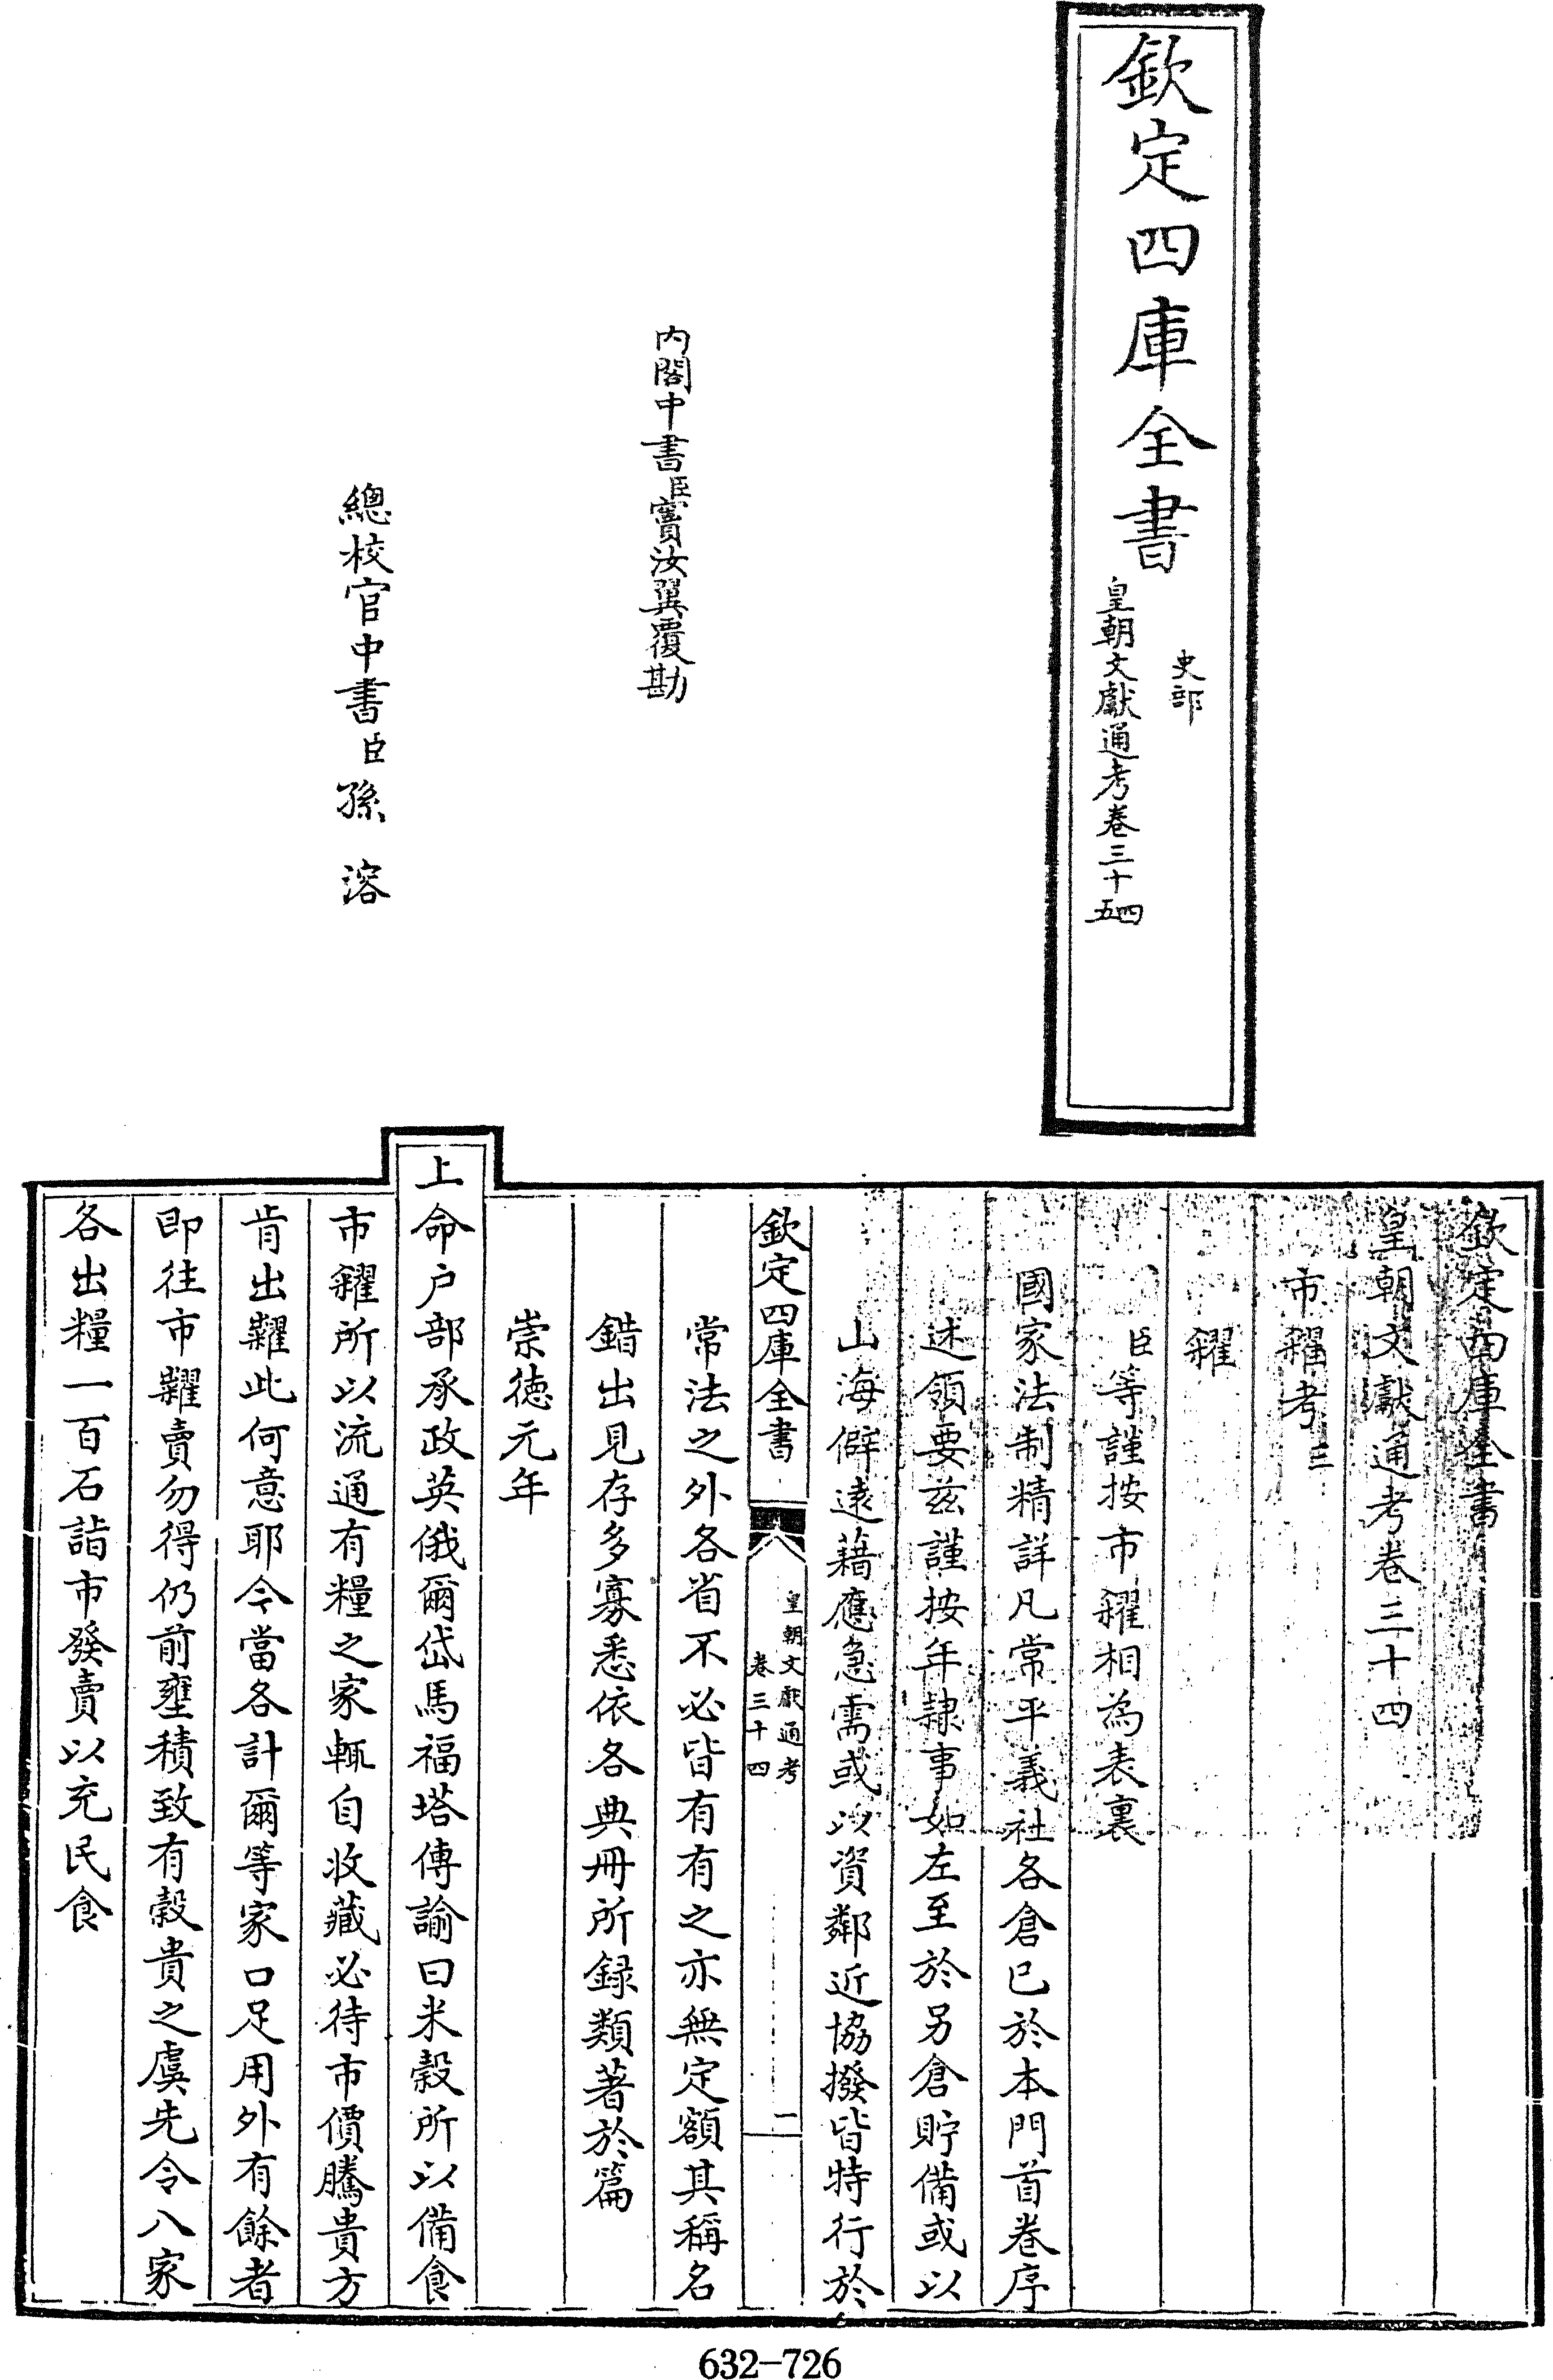 欽定四庫全書
史部
皇朝文獻通考卷三十四五
内閣中書臣竇汝翼覆勘
總校官中書臣孫溶
欽定四庫全書
皇朝文獻通考卷三十四
市糴考三
糴
臣等謹按市糴相為表裏
國家法制精詳凡常平義社各倉已於本門首卷序
述領要兹謹按年隷事如左至於另倉貯備或以
山海僻逺藉應急需或以資鄰近協撥皆特行於
欽定四庫全書
皇朝文獻通考
卷三十四
二
常法之外各省不必皆有有之亦無定額其稱名
錯出見存多寡悉依各典冊所録類著於篇
崇德元年
上命户部承政英俄爾岱馬福塔傳諭曰米穀所以備食
市糴所以流通有糧之家輒自收藏必待市價騰貴方
肯出糶此何意耶今當各計爾等家口足用外有餘者
即往市糶賣勿得仍前壅積致有穀貴之虞先令八家
各出糧一百石詣市發賣以充民食
632-726